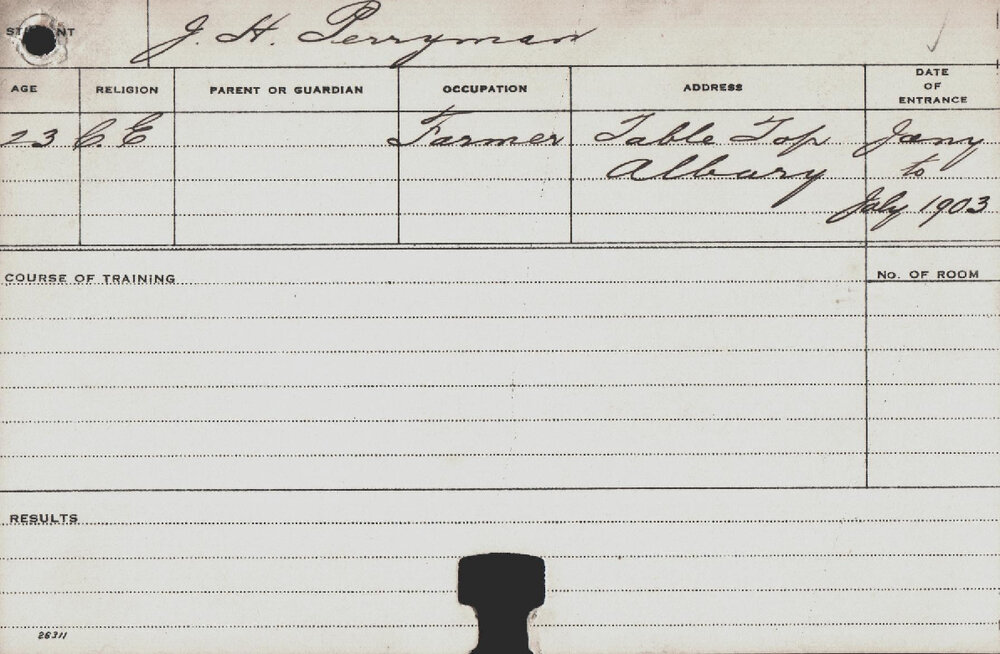 STUDENT J. H. Perryman
AGE RELIGION PARENT OR GUARDIAN OCCUPATION ADDRESS DATE OF ENTRANCE
23 C. E Farmer Table Top Jany
Albury to
July 1903
COURSE OF TRAINING No. OF ROOM
RESULTS
26311